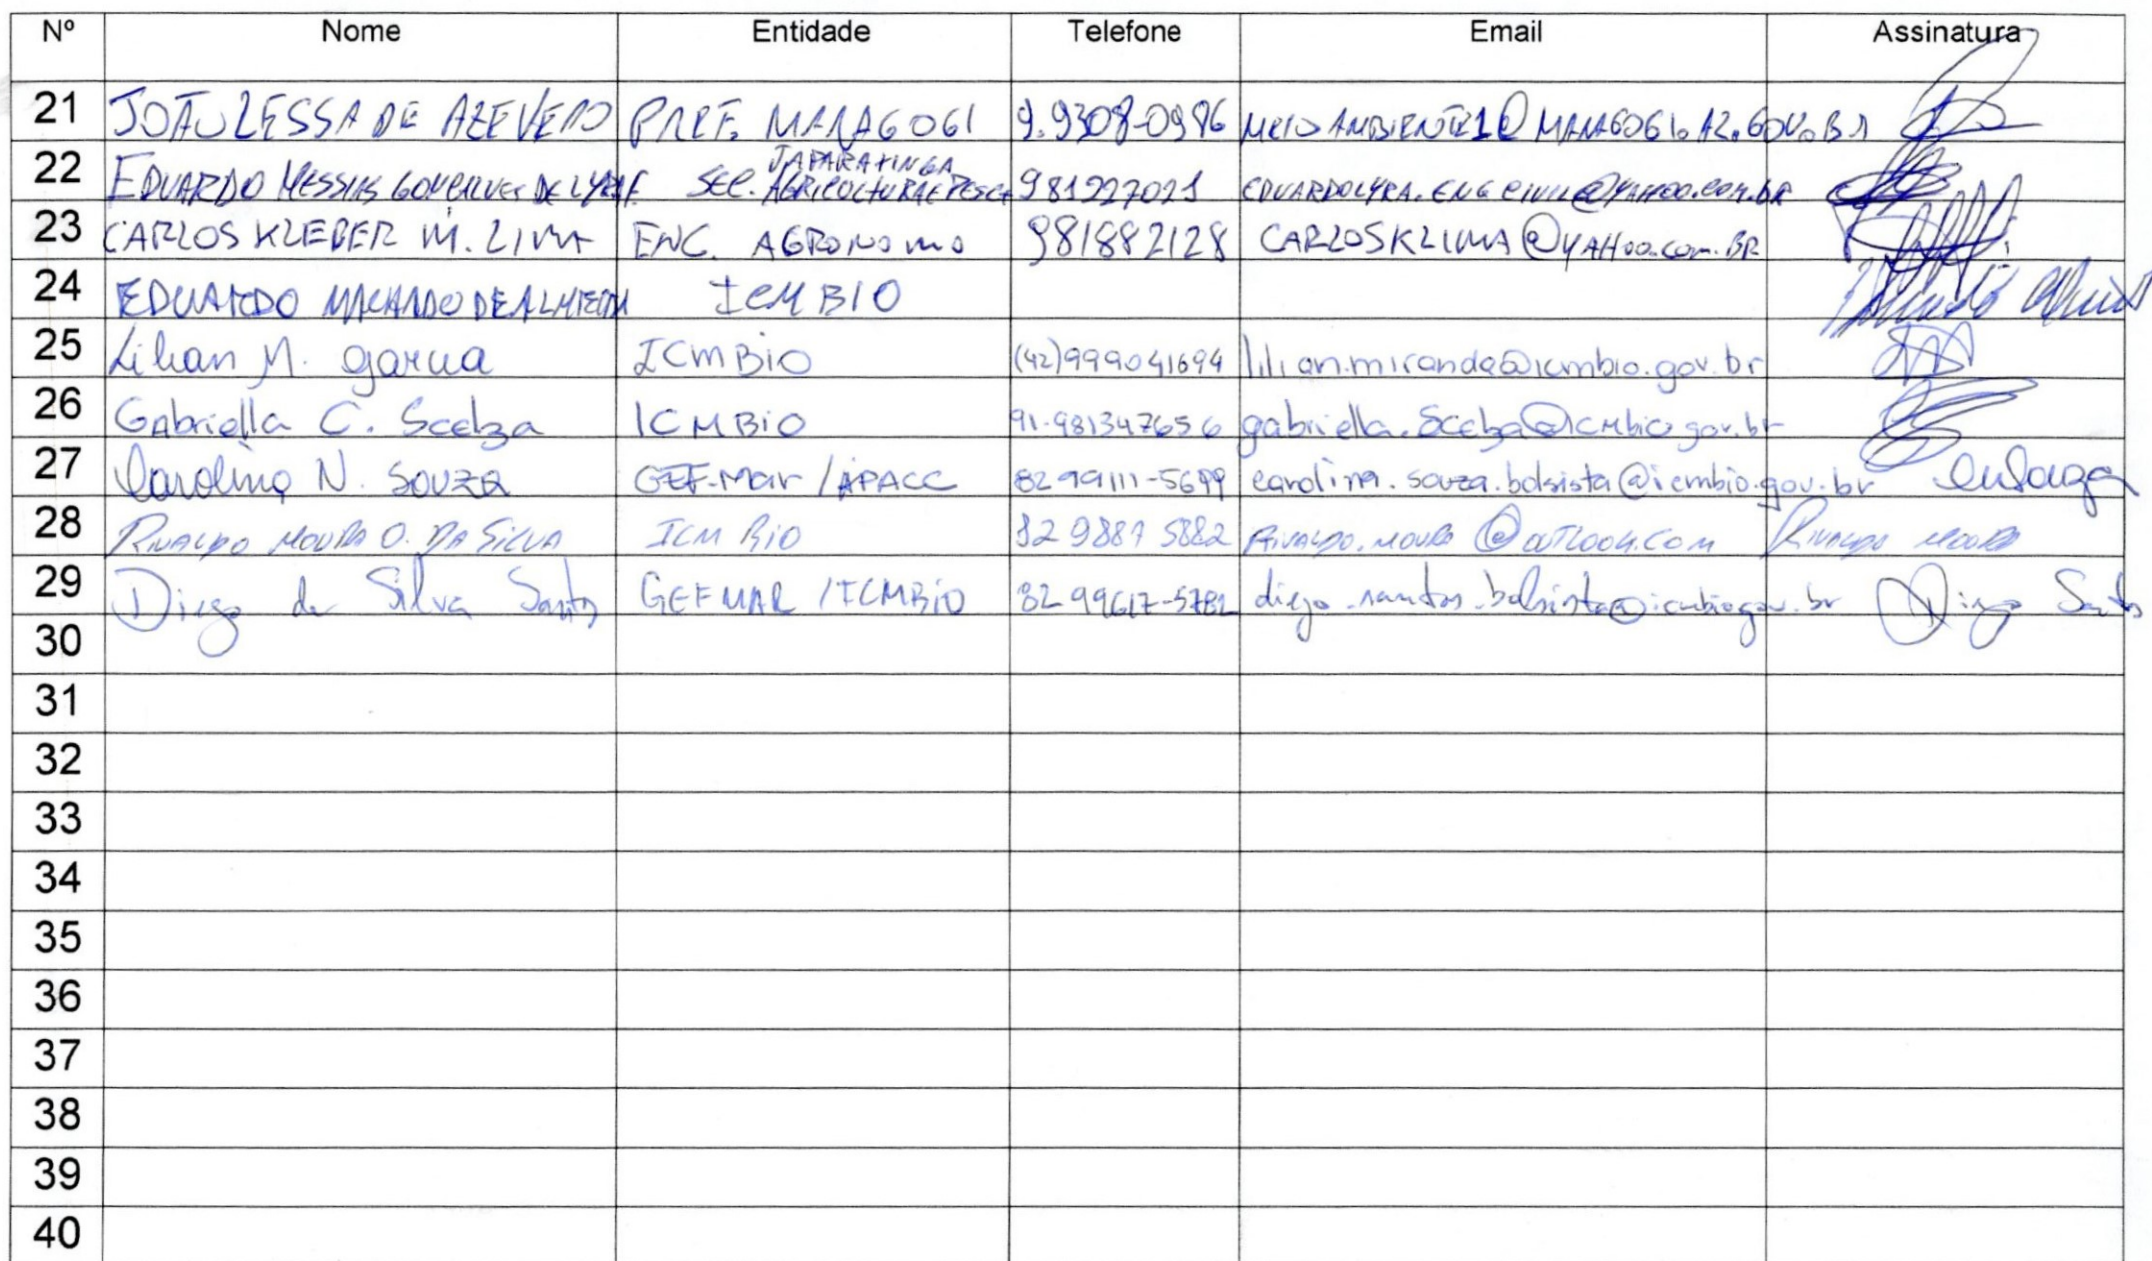 Nº Nome Entidade Telefone Email Assinatura
21 JOÃO LESSA DE AZEVEDO PREF. MARAGOGI 9.9308-0986 MEIOAMBIENTE1@MARAGOGI.AL.GOV.BR
22 EDUARDO MESSIAS GONÇALVES DE LYRA F. SEC. JAPARATINGA AGRICULTURA E PESCA 981227021 EDUARDOLYRA.ENGCIVIL@YAHOO.COM.BR
23 CARLOS KLEBER M. LIMA ENG. AGRONOMO 981882128 CARLOSKLIMA@YAHOO.COM.BR
24 EDUARDO MACHADO DE ALMEIDA ICMBIO
25 Lilian M. Garcia ICMBio (42)999041694 lilian.miranda@icmbio.gov.br
26 Gabriella C. Scelza ICMBio 91-981347656 gabriella.scelza@icmbio.gov.br
27 Carolina N. Souza GEF-Mar/APACC 82 99111-5699 carolina.souza.bolsista@icmbio.gov.br
28 RIVALDO MOURA O. DA SILVA ICMBio 82 9887 5882 RIVALDO.MOURA@OUTLOOK.COM RIVALDO MOURA
29 Diego da Silva Santos GEFMAR/ICMBio 82 99617-5782 diego.santos.bolsista@icmbio.gov.br Diego Santos
30
31
32
33
34
35
36
37
38
39
40